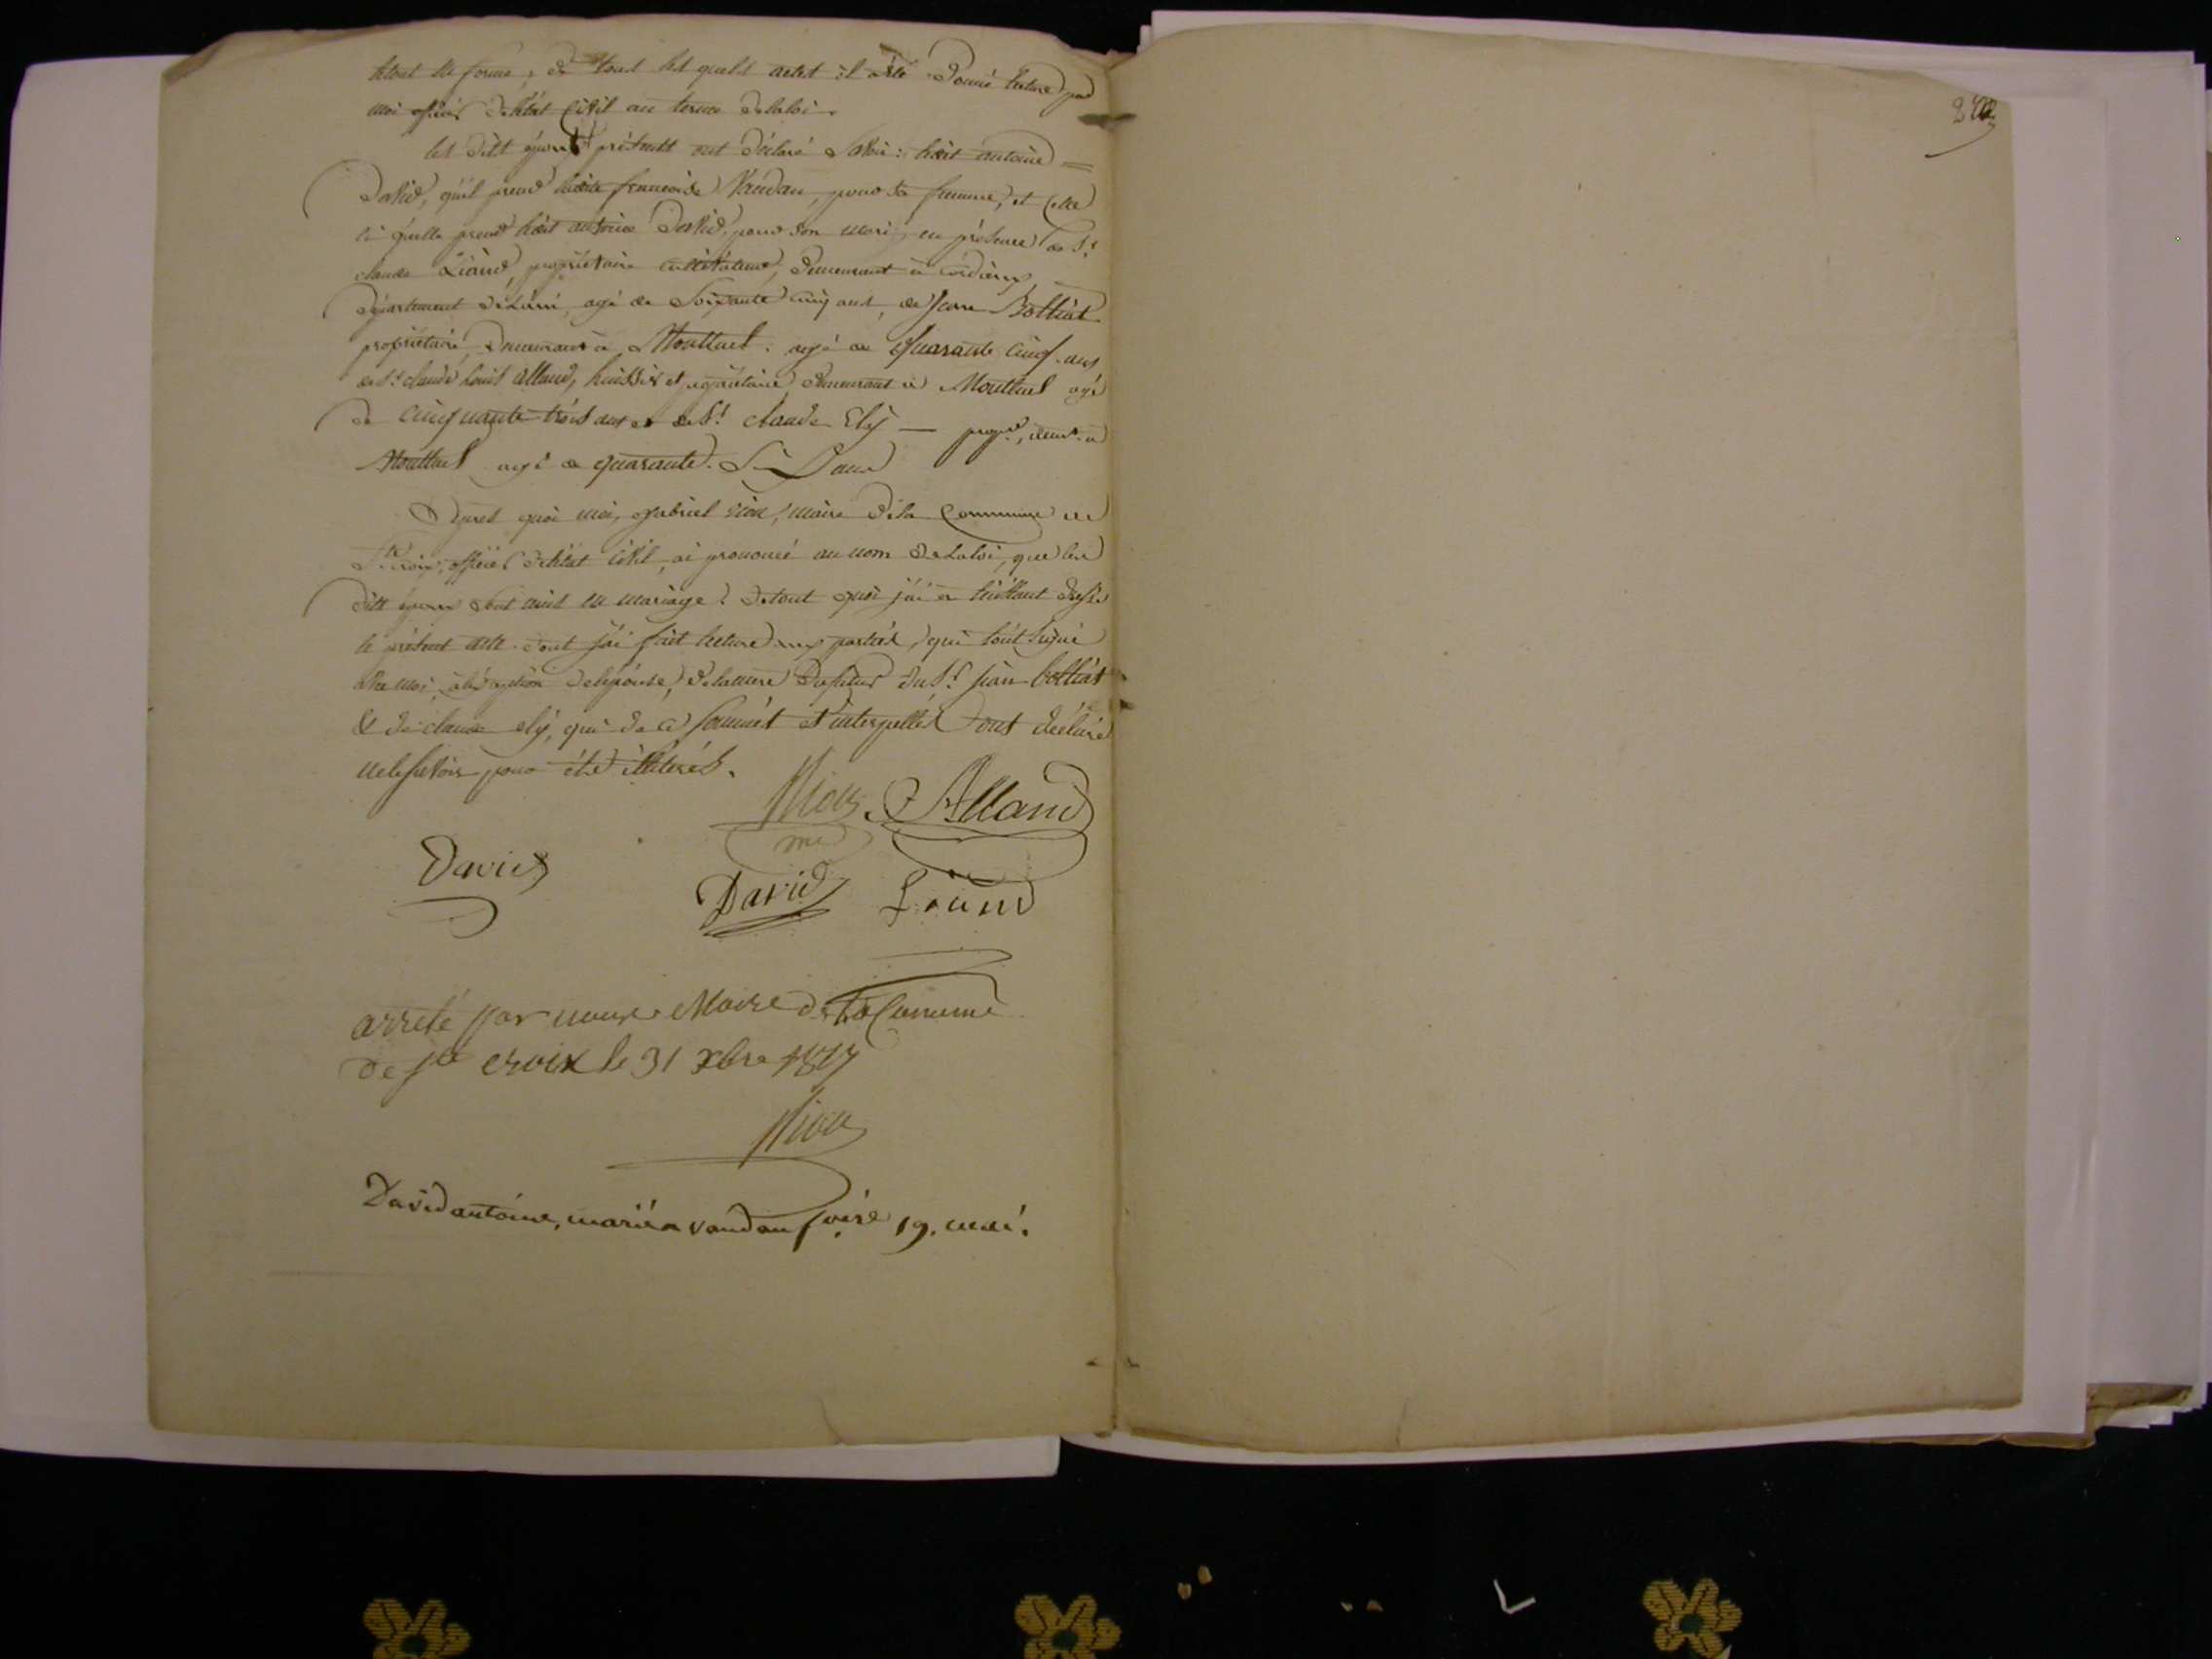 le tout en forme; de tous les quels actes il a été donné lecture par
moi officier de l'état civil au termes de la loi.
les dits époux présents ont déclaré savoir: ledit antoine =
David, qu'il prend ladite francoise Vaudan, pour sa femme, et celle
ci qu'elle prend ledit antoine David, pour son mari, en présence de Sr.
claude Liaud, propriétaire cultivateur, demeurant à cordieux
département de l'ain, agé de Soixante cinq ans, de Jean Bolliat
propriétaire, demeurant à Montluel, agé de quarante cinq ans
de Sr. claude Louis alland, huissier et propriétaire demeurant à Montluel agé
de cinquante trois ans et de Sr. claude Ely — propre., demt. à
Montluel agé de quarante
Apres quoi moi, gabriel Nion, maire de la Commune de
Ste. croix, officier de l'état civil, ai prononcé au nom de la loi, que les
dits époux sont unis en mariage. de tout quoi j'ai à l'instant dressé
le présent acte dont j'ai fait lecture aux parties, qui l'ont signé
avec moi, à l'exception de l'épouse, de la mère du futur du Sr. jean bolliat
& de claude ely, qui de ce sommés et interpellés ont déclaré
ne le savoir pour être illiterés.
Nion Alland
me
David
David Liaud
arreté par nous Maire de la Commune
de Ste croix le 31 Xbre 1817
Nion
David antoine, marié a vaudan f.oise 19. mai.